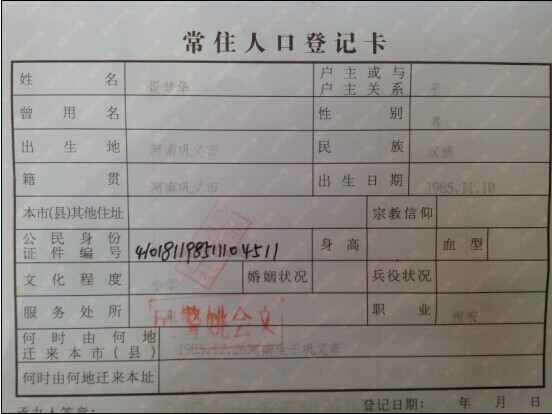 常住人口登记卡
姓名 户主或与户主关系 子
曾用名 性别 男
出生地 河南巩义市 民族 汉族
籍贯 河南巩义市 出生日期 1985.11.10
本市(县)其他住址 宗教信仰
公民身份证件编号 410181198511104511 身高 血型
文化程度 小学 婚姻状况 兵役状况
服务处所 职业
何时由何地迁来本市(县) 1985.12.26河南
何时由何地迁来本址
承办人签章: 登记日期: 年 月 日